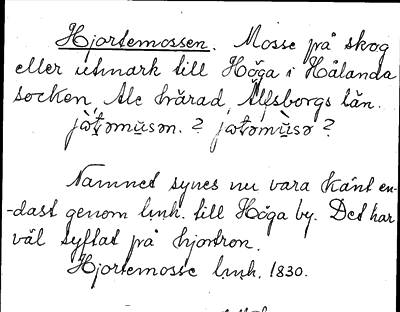 Hjortemossen. Mosse på skog
eller utmark till Höga i Hålanda
socken, Ale härad, Älfsborgs län.
jòt̠əmùsən. ? jòt̠əmùsə ?
Namnet synes nu vara känt en-
-dast genom lmk. till Höga by. Det har
väl syftat på hjortron.
Hjortemosse lmk. 1830.